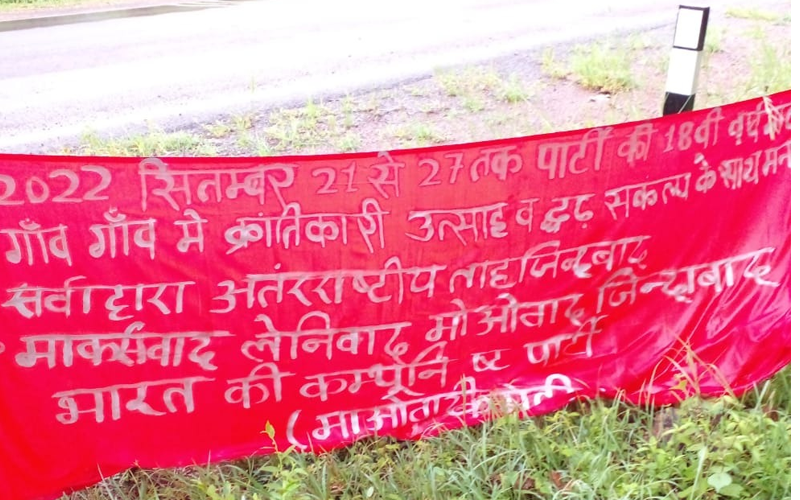 2022 सितम्बर 21 से 27 तक पार्टी की 18वी वर्षगां
गाँव गाँव मे क्रांतिकारी उत्साह व द्रढ़ सकल्प के साथ मना
सर्वाहारा अतंरराष्टीय ताहाजिन्दाबाद
मार्क्सवाद लेनिवाद मोओवाद जिन्दाबाद
भारत की कम्युनि ष्ट पार्टी